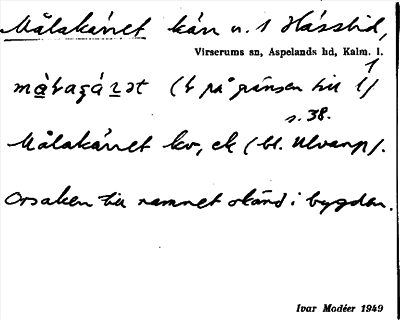 Målakärret kärr n. 1 Hässlid,
Virserums sn, Aspelands hd, Kalm. l.
(t på gränsen till l)
s. 38.
Målakärret kv, ek (bl. Ulvarp).
Orsaken till namnet okänd i bygden.
Ivar Modéer 1949